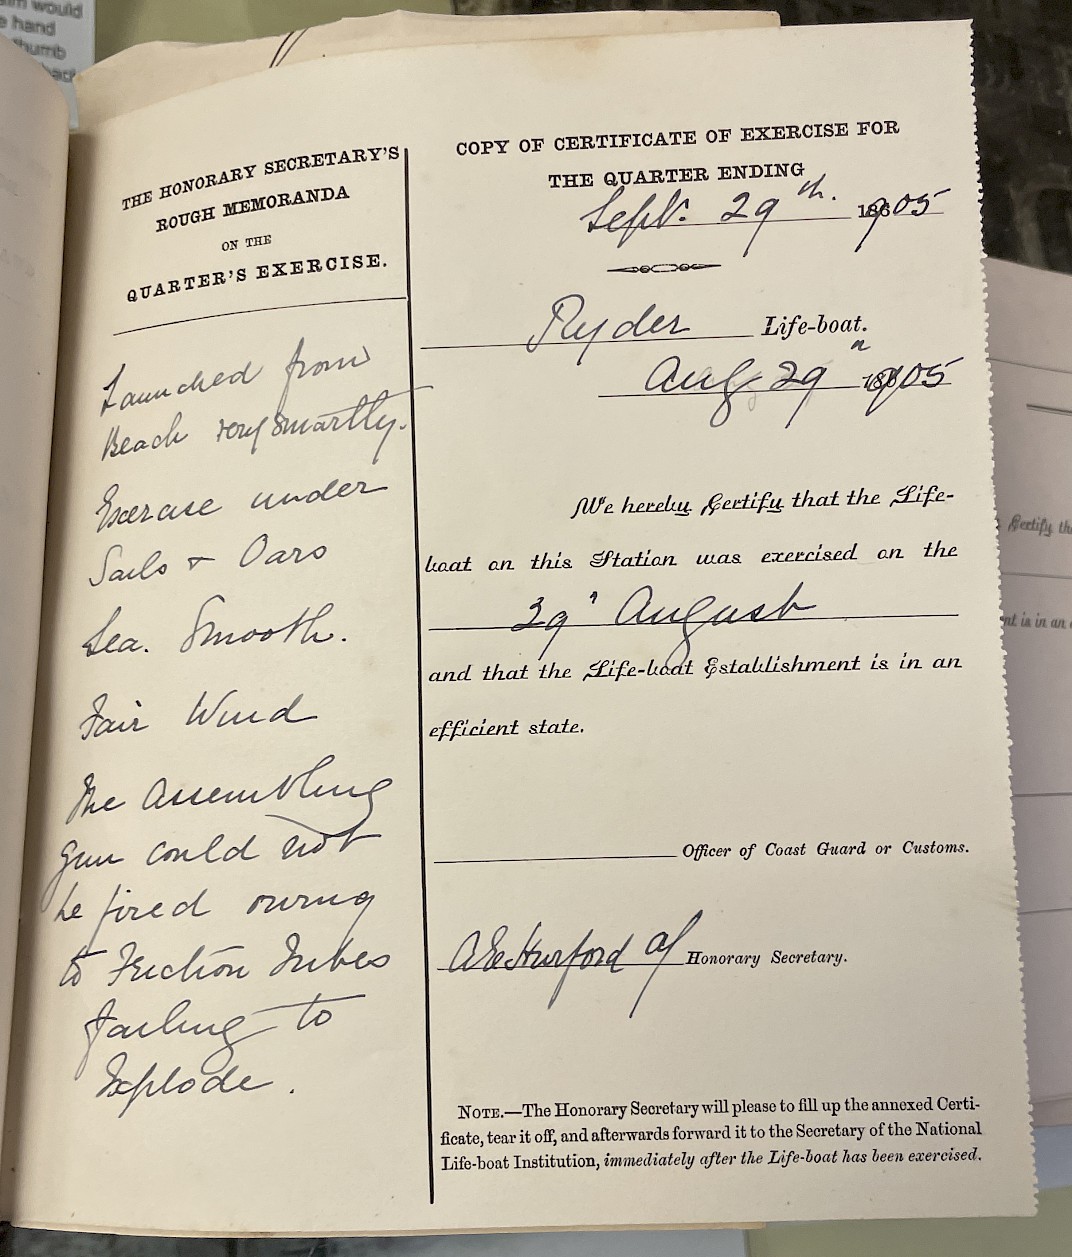 THE HONORARY SECRETARY'S
ROUGH MEMORANDA
ON THE
QUARTER'S EXERCISE.
Launched from
Beach very smartly.
Exercise under
Sails & Oars
Sea. Smooth.
Fair Wind
The Assembling
Gun could not
be fired owing
to Friction Tubes
failing to
Explode.
COPY OF CERTIFICATE OF EXERCISE FOR
THE QUARTER ENDING
Sept. 29th. 1905
Ryder Life-boat.
Aug 29 1905
We hereby Certify that the Life-
boat on this Station was exercised on the
29 August
and that the Life-boat Establishment is in an
efficient state.
Officer of Coast Guard or Customs.
Hurford Honorary Secretary.
NOTE.—The Honorary Secretary will please to fill up the annexed Certi-
ficate, tear it off, and afterwards forward it to the Secretary of the National
Life-boat Institution, immediately after the Life-boat has been exercised.
would
hand
thumb
Certify
is in an